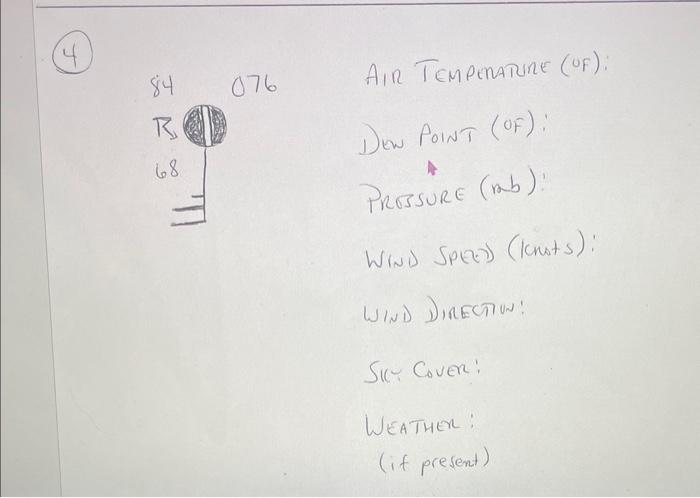 4
84 076
68
AIR TEMPERATURE (OF):
DEW POINT (OF):
PRESSURE (mb):
WIND SPEED (knots):
WIND DIRECTION:
SKY COVER:
WEATHER:
(if present)